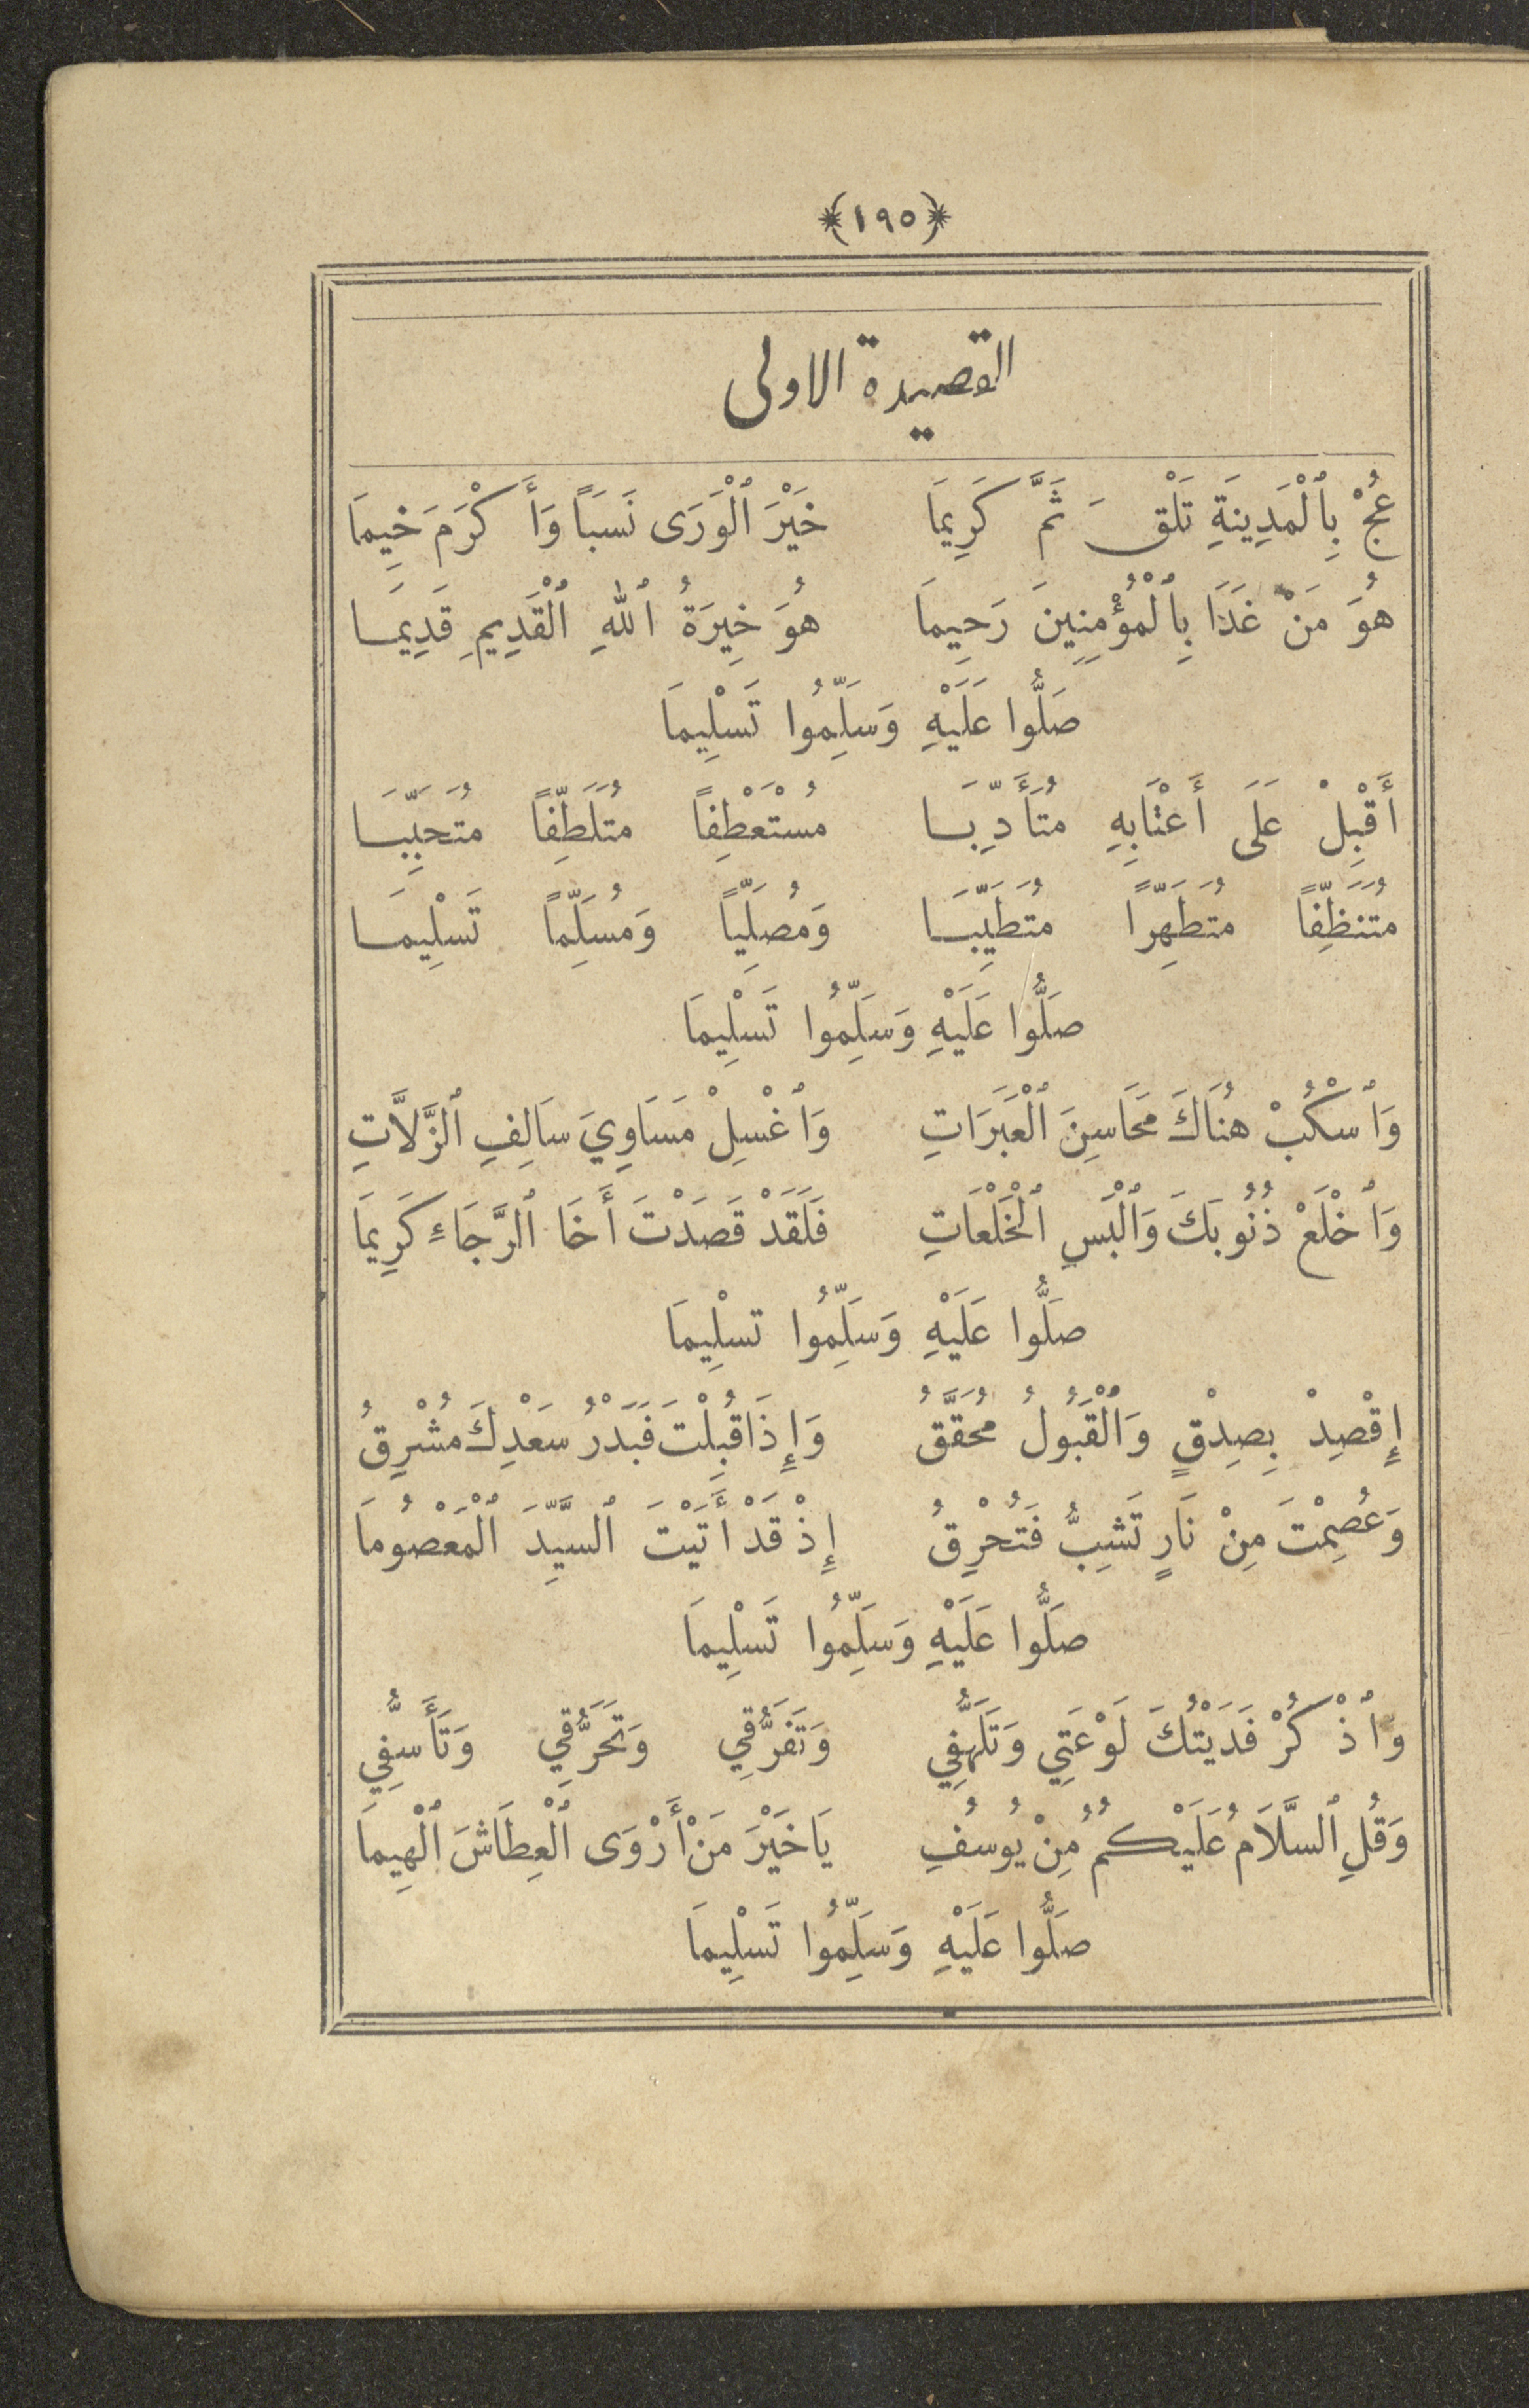 ﴿١٩٥﴾
القصيدة الاولى
عُجْ بِٱلْمَدِينَةِ تَلْقَ ثَمَّ كَرِيمَا خَيْرَ ٱلْوَرَى نَسَبَاً وَأَكْرَمَ خِيمَا
هُوَ مَنْ غَدَا بِٱلْمُؤْمِنِينَ رَحِيمَا هُوَ خِيرَةُ ٱللهِ ٱلْقَدِيمِ قَدِيمَا
صَلُّوا عَلَيْهِ وَسَلِّمُوا تَسْلِيمَا
أَقْبِلْ عَلَى أَعْتَابِهِ مُتَأَدِّبَا مُسْتَعْطِفاً مُتَلَطِّفاً مُتَحَبِّبَا
مُتَنَظِّفاً مُتَطَهِّراً مُتَطَيِّبَا وَمُصَلِّياً وَمُسَلِّماً تَسْلِيمَا
صَلُّوا عَلَيْهِ وَسَلِّمُوا تَسْلِيمَا
وَٱسْكُبْ هُنَاكَ مَحَاسِنَ ٱلْعَبَرَاتِ وَٱغْسِلْ مَسَاوِيَ سَالِفِ ٱلزَّلاَّتِ
وَٱخْلَعْ ذُنُوبَكَ وَٱلْبَسِ ٱلْخَلْعَاتِ فَلَقَدْ قَصَدْتَ أَخَا ٱلرَّجَاءِ كَرِيمَا
صَلُّوا عَلَيْهِ وَسَلِّمُوا تسْلِيمَا
إِقْصِدْ بِصِدْقٍ وَٱلْقَبُولُ مُحَقَّقُ وَإِذَا قُبِلْتَ فَبَدْرُ سَعْدِكَ مُشْرِقُ
وَعُصِمْتَ مِنْ نَارٍ تَشِبُّ فَتُحْرِقُ إِذْ قَدْ أَتَيْتَ ٱلسَّيِّدَ ٱلْمَعْصُومَا
صَلُّوا عَلَيْهِ وَسَلِّمُوا تَسْلِيمَا
وَٱذْكُرْ فَدَيْتُكَ لَوْعَتِي وَتَلَهُّفِي وَتَفَرُّقِي وَتَحَرُّقِي وَتَأَسُّفِي
وَقُلِ ٱلسَّلاَمُ عَلَيْكُمُ مِنْ يُوسُفِ يَاخَيْرَ مَنْ أَرْوَى ٱلْعِطَاشَ ٱلْهِيمَا
صَلُّوا عَلَيْهِ وَسَلِّمُوا تَسْلِيمَا